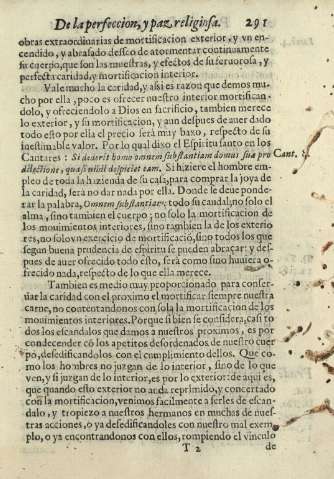 De la perfeccion, y paz religiosa. 291
obras extraordinarias de mortificacion exterior, y vn en-
cendido, y abrasado desseo de atormentar continuamente
su cuerpo, que son las muestras, y efectos de su feruorosa, y
perfecta caridad, y mortificacion interior.
Vale mucho la caridad, y assi es razon que demos mu-
cho por ella, poco es ofrecer nuestro interior mortifican-
dolo, y ofreciendolo a Dios en sacrificio, tambien merece
lo exterior, y su mortificacion, y aun despues de auer dado
todo esto por ella el precio será muy baxo, respecto de su
inestimable valor. Por lo qual dixo el Espiritu santo en los
Cantares: Si dederit homo omnem substantiam domus suæ pro Cant. 8.
dilectione, quasi nihil despiciet eam. Si hiziere el hombre em-
pleo de toda la hizienda de su casa, para comprar la joya de
la caridad, sera no dar nada por ella. Donde se deue ponde-
rar la palabra, Omnem substantiam; todo su caudal, no solo el
alma, sino tambien el cuerpo; no solo la mortificacion de
los mouimientos interiores, sino tambien la de los exterio
res, no solo vn exercicio de mortificació, sino todos los que
segun buena prudencia de espiritu se pueden abraçar, y des-
pues de auer ofrecido todo esto, será como sino huuiera o-
frecido nada, respecto de lo que ella merece.
Tambien es medio muy proporcionado para conser-
uar la caridad con el proximo el mortificar siempre nuestra
carne, no contentandonos con sola la mortificacion de los
mouimientos interiores. Porque si bien se considera, casi to
dos los escandalos que damos a nuestros proximos, es por
condecender có los apetitos desordenados de nuestro cuer
po, desedificandolos con el cumplimiento dellos. Que co-
mo los hombres no juzgan de lo interior, sino de lo que
ven, y si juzgan de lo interior, es por lo exterior: de aqui es,
que quando esto exterior no anda reprimido, y concertado
con la mortificacion, venimos facilmente a serles de escan-
dalo, y tropiezo a nuestros hermanos en muchas de nues-
tras acciones, o ya desedificandoles con nuestro mal exem-
plo, o ya encontrandonos con ellos, rompiendo el vinculo
T 2 de